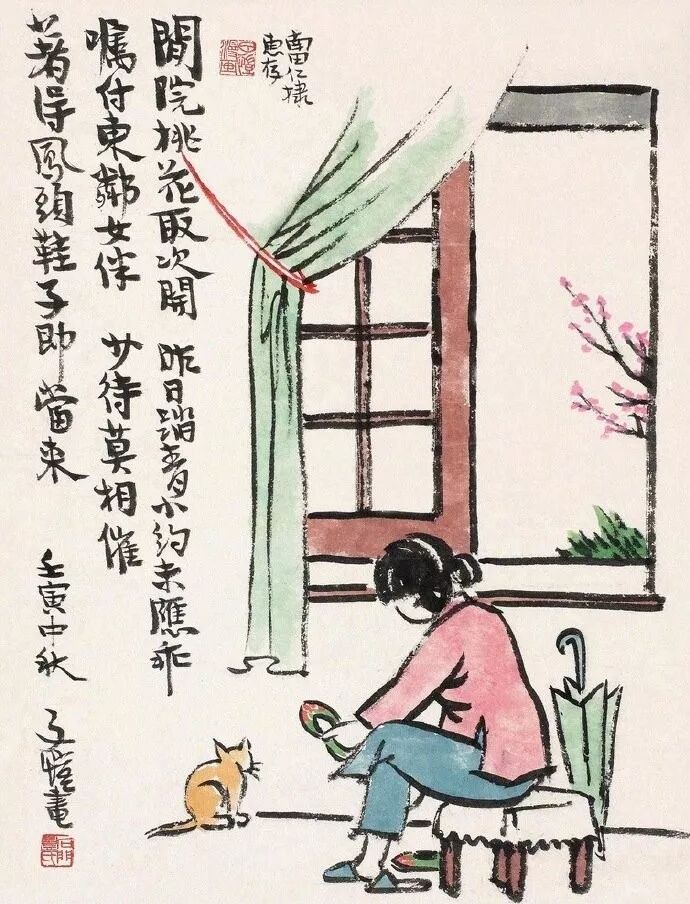 南田仁棣
惠存
閒院桃花取次開 昨日踏青小約未應乖
囑付東鄰女伴 少待莫相催
著得鳳頭鞋子即當來 壬寅中秋 子愷畫